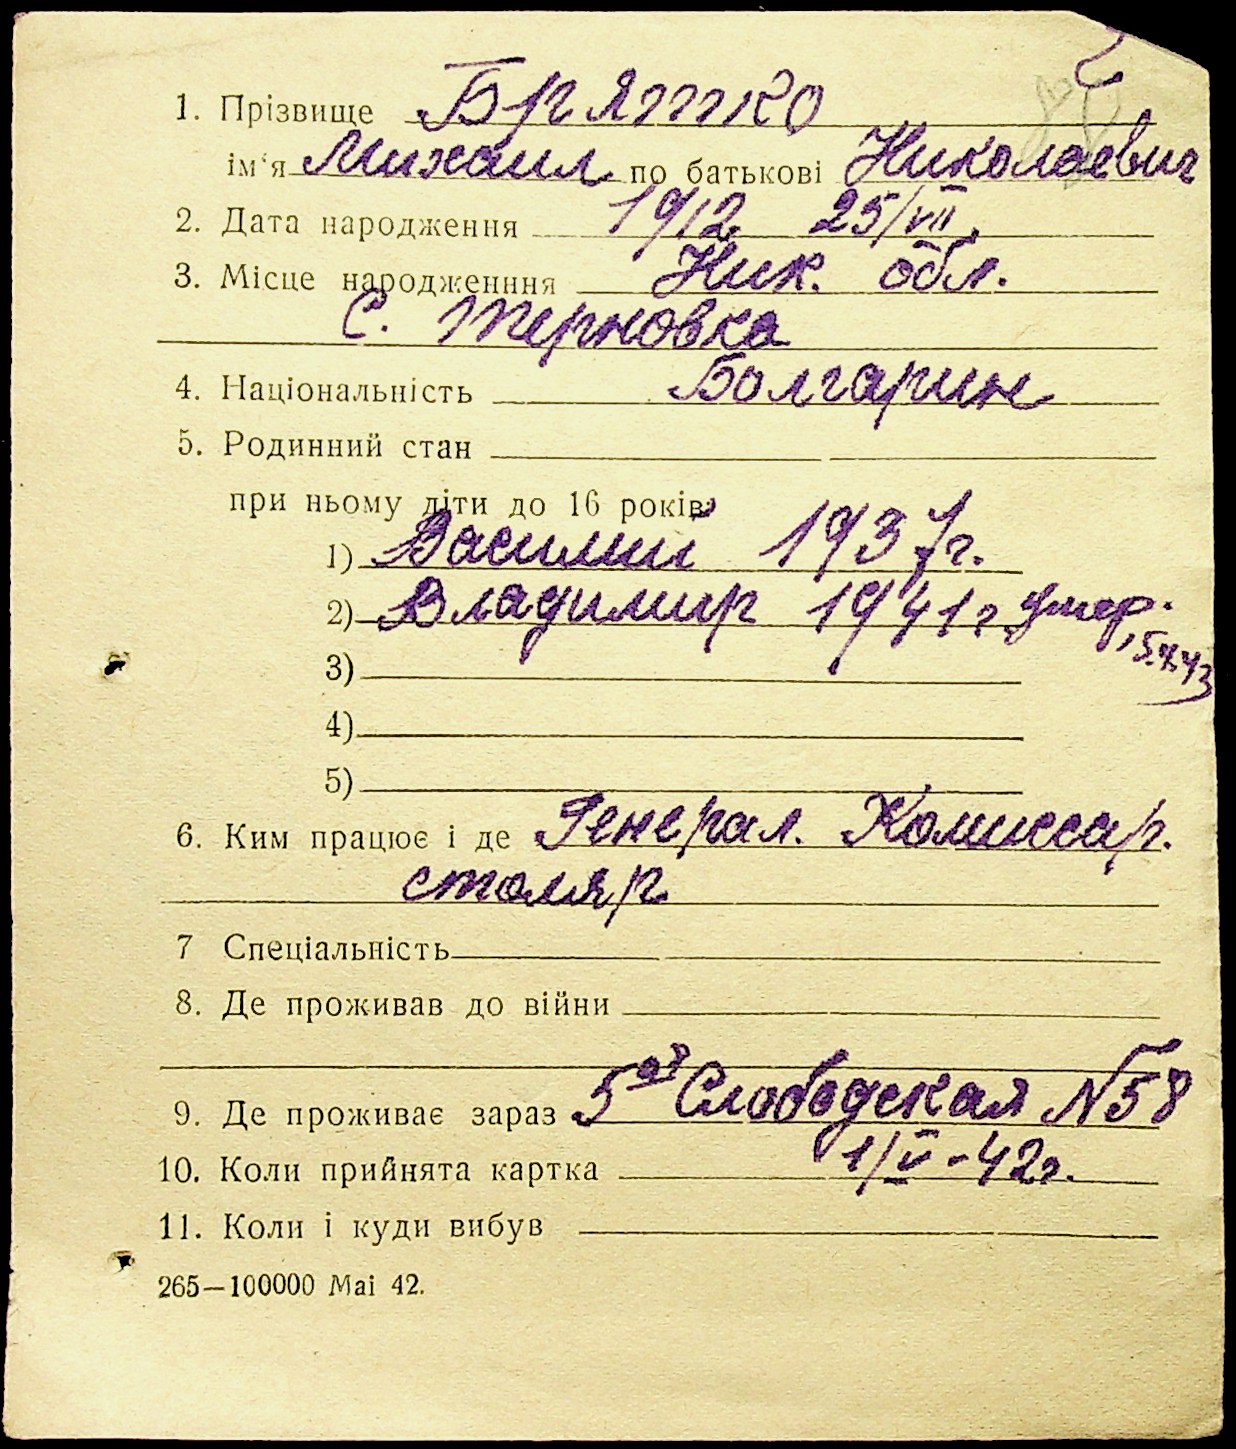 1. Прізвище Брятко
ім'я Михаил по батькові Николаевич
2. Дата народження 1912 25/VII
3. Місце народженння Ник. обл.
С. Терновка
4. Національність Болгарин
5. Родинний стан
при ньому діти до 16 років
1) Василий 1937г.
2) Владимир 1941г умер.
3)
4)
5)
6. Ким працює і де Генерал. Комиссар.
столяр
7 Спеціальність
8. Де проживав до війни
9. Де проживає зараз 5ая Слободская №58
10. Коли прийнята картка 1/V-42г.
11. Коли і куди вибув
265—100000 Mai 42.